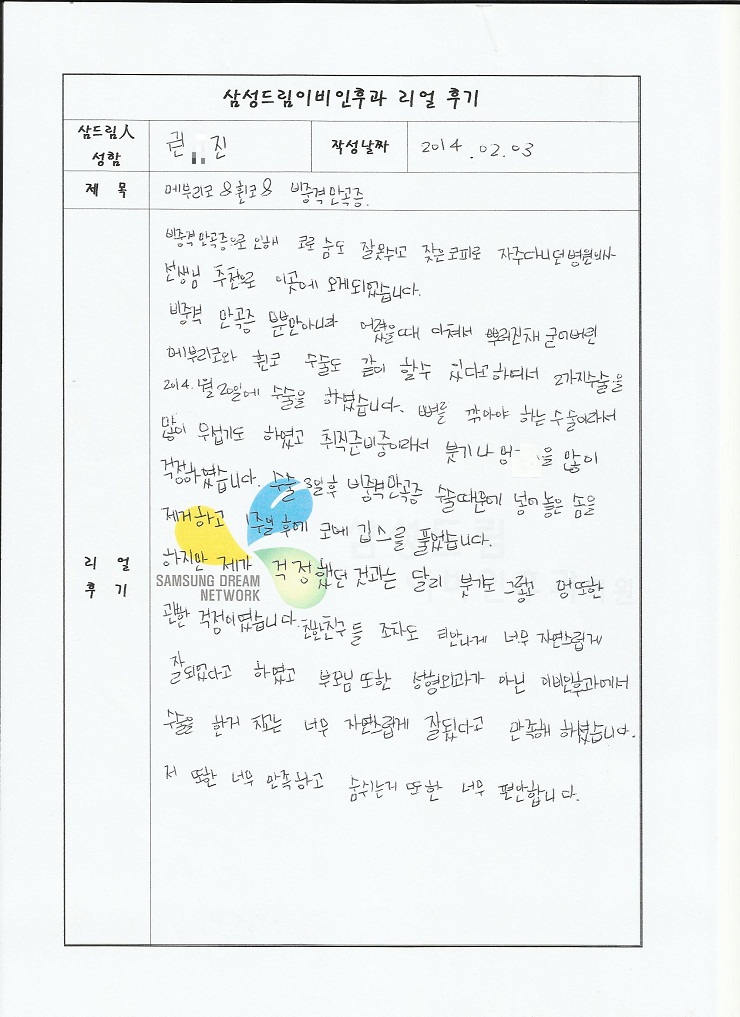 삼성드림이비인후과 리얼 후기
삼드림人
성함
권 진
작성날짜
2014.02.03
제 목
메부리코 & 휜코 & 비중격만곡증.
리 얼
후 기
비중격만곡증으로 인해 코로 숨도 잘못쉬고 잦은코피로 자주다니던병원의사
선생님 추천으로 이곳에 오게되었습니다.
비중격 만곡증 뿐만아니라 어렸을때 다쳐서 뿌러진채 굳어버린
메부리코와 휜코 수술도 같이 할수 있다고하여서 2가지수술을
2014.1월 20일에 수술을 하였습니다. 뼈를 깎아야 하는 수술이라서
많이 무섭기도 하였고 취직준비중이라서 붓기나 멍 을 많이
걱정하였습니다. 수술 3일후 비중격만곡증 수술때문에 넣어놓은 솜을
제거하고 1주일 후에 코에 깁스를 풀었습니다.
하지만 제가 걱정했던 것과는 달리 붓기도 그렇고 멍또한
괜한 걱정이였습니다. 친한친구들 조차도 티안나게 너무 자연스럽게
잘되었다고 하였고 부모님 또한 성형외과가 아닌 이비인후과에서
수술을 한거 치고는 너무 자연스럽게 잘됬다고 만족해 하셨습니다.
저 또한 너무 만족하고 숨쉬는거 또한 너무 편안합니다.
SAMSUNG DREAM
NETWORK